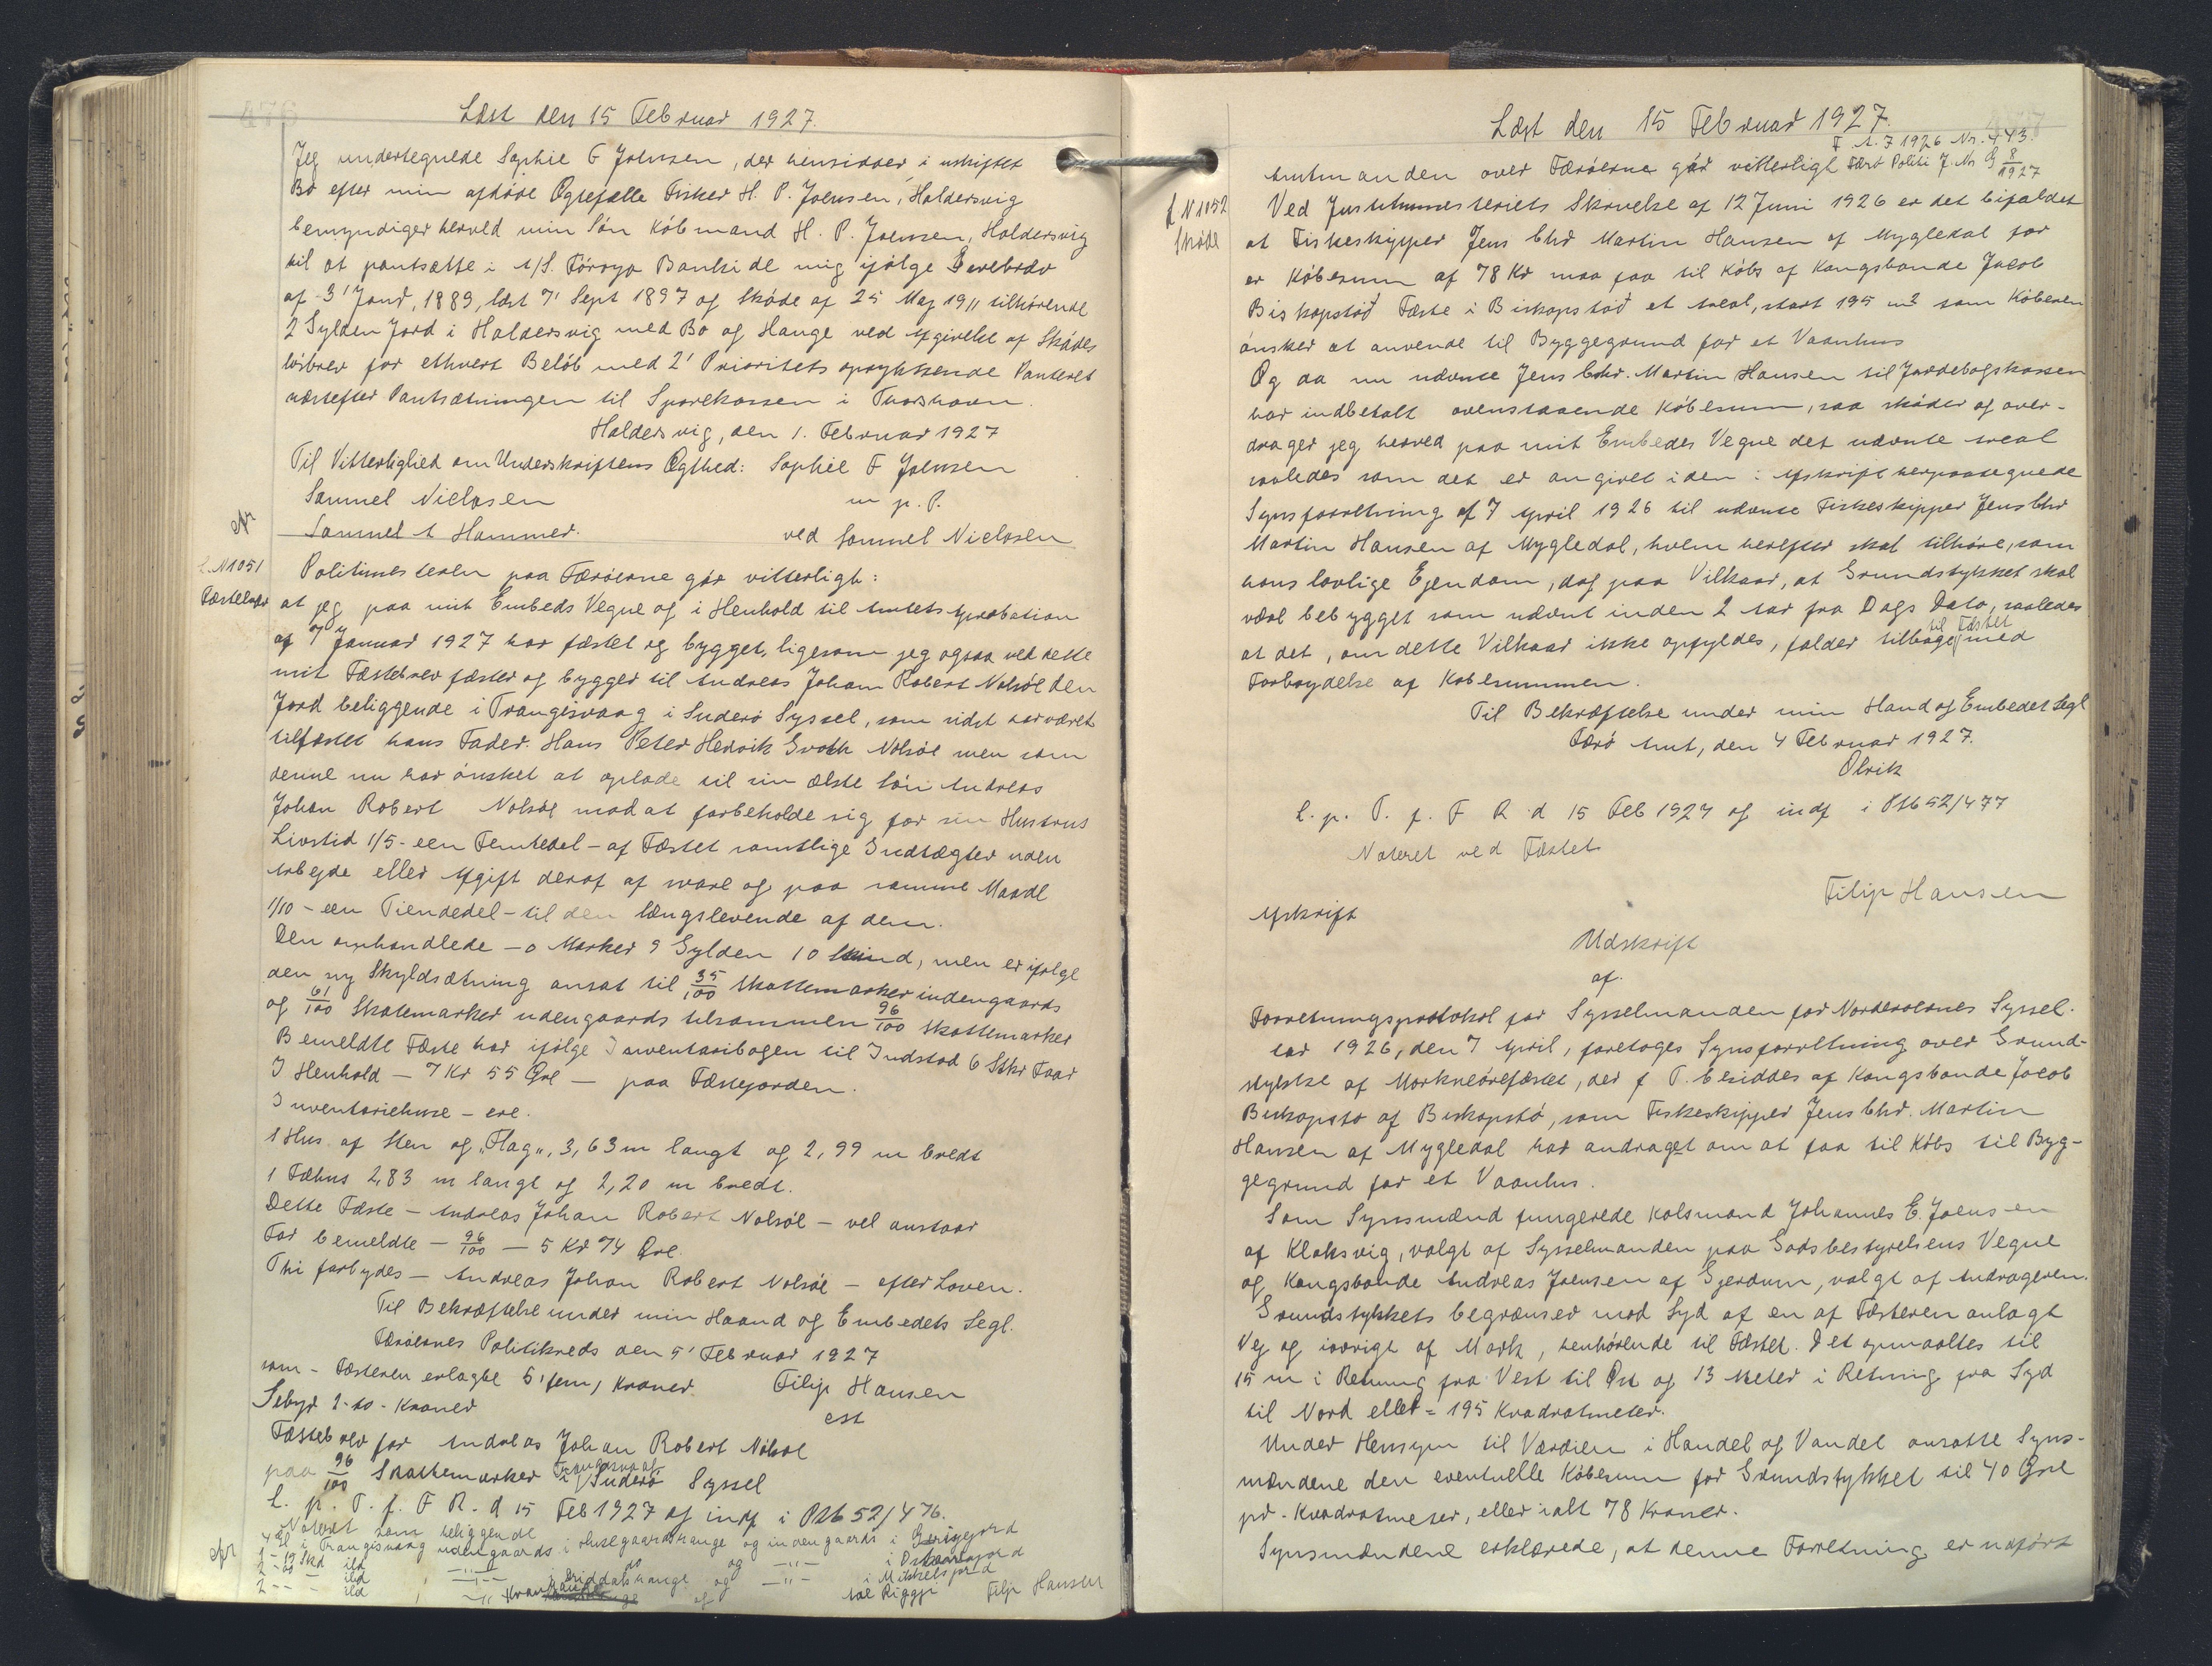 476
Læst den 15 Februar 1927.
Jeg undertegnede Sophie F Joensen, der hensidder i uskiftet
Bo efter min afdøde Ægtefælle Fisker H. P. Joensen, Haldersvig
bemyndiger herved min Søn Købmand H. P. Joensen, Haldersvig
til at pantsætte i A/S. Föroya Banki de mig ifølge
af 3' Janr, 1889, læst 7' Sept 1897 og Skøde af 25 Maj 1911 tilhørende
2 Gylden Jord i Haldersvig med Bø og Hauge ved Afgivelse af Skades
løsbrev for ethvert Beløb med 2' Prioritets oprykkende Panteret
næstefter Pantsætningen til Sparekassen i Thorshavn.
Haldersvig, den 1. Februar 1927
Til Vitterlighed om Underskriftens Ægthed: Sophie F Joensen
Samuel Niclasen m. p. P.
Samuel A Hammer. ved Samuel Niclasen
L. N 1051
Fæstebrev
Politimesteren paa Færøerne gør vitterligt:
at jeg paa mit Embeds Vegne og i Henhold til Amtets Aprobation
af 7 Januar 1927 har fæstet og bygget, ligesom jeg ogsaa ved dette
mit Fæstebrev fæster og bygger til Andreas Johan Robert Nolsøe den
Jord beliggende i Trangisvaag i Suderø Syssel, som sidst har været
tilfæstet hans Fader. Hans Peter Henrik Groth Nolsøe men som
denne nu har ønsket at oplade til sin ældste Søn Andreas
Johan Robert Nolsøe mod at forbeholde sig for sin Hustrus
Livstid 1/5 - een Femtedel - af Fæstet samtlige Indtægter uden
Arbejde eller Afgift deraf at svare og paa samme Maade
1/10 - een Tiendedel - til den længslevende af dem.
Den omhandlede - 0 Marker 9 Gylden 10 Skind, men er ifølge
den ny Skyldsætning ansat til 35/100 Skattemarker indengaards
og 61/100 Skattemarker udengaards tilsammen 96/100 Skattemarker
Bemeldte Fæste har ifølge Inventariebogen til Indstød 6 Stkr Faar
I Henhold - 7 Kr 55 Øre - paa Fæstejorden.
Inventariehuse - ere.
1 Hus af Sten og "Flag", 3,63 m langt og 2,99 m bredt
1 Fæhus 2,83 m langt og 2,20 m bredt.
Dette Fæste - Andreas Johan Robert Nolsøe - vel anstaar
For bemeldte - 96/100 - 5 Kr 74 Øre.
Thi forbydes - Andreas Johan Robert Nolsøe - efter Loven.
Til Bekræftelse under min Haand og Embedets Segl.
Færøernes Politikreds den 5' Februar 1927
som - Fæsteren erlagte 5, fem, Kroner. Filip Hansen
Gebyr 2 - to - Kroner cst
Fæstebrev for Andreas Johan Robert Nolsøe
paa 96/100 Skattemarker i Trangisvaag Suderø Syssel
L. p. T. f. F R. d 15 Feb 1927 og indf i Ptb 52/476.
Noteret som beliggende
i Trangisvaag udengaards i Husegaardshauge og indengaards i
og i
og i Mikkelsjord
og Filip Hansen
Læst den 15 Februar 1927.
F A. J 1926 Nr. 443.
Amtmanden over Færøerne gør vitterligt Færø Politi J. Nr G 8/1927
L N 1052
Skøde
Ved Justitsministeriets Skrivelse af 12 Juni 1926 er det bifaldet
at Fiskeskipper Jens Chr Martin Hansen af Mygledal for
en Købesum af 78 Kr maa faa til Købs af Kongsbonde Jacob
Biskopstø Fæste i Biskopstø et Areal, stort 195 m2 som Køberen
ønsker at anvende til Byggegrund for et Vaanhus
Og da nu nævnte Jens Chr. Martin Hansen til Jordebogskassen
har indbetalt ovenstaaende Købesum, saa skøder og over-
drager jeg herved paa mit Embedes Vegne det nævnte Areal
saaledes som det er angivet i den i Afskrift herpaategnede
Synsforretning af 7 April 1926 til nævnte Fiskeskipper Jens Chr
Martin Hansen af Mygledal, hvem herefter skal tilhøre, som
hans lovlige Ejendom, dog paa Vilkaar, at Grundstykket skal
være bebygget som nævnt inden 2 Aar fra Dags Dato, saaledes
at det, om dette Vilkaar ikke opfyldes, falder tilbage til Fæstet med
Forbrydelse af Købesummen.
Til Bekræftelse under min Haand og Embedet Segl
Færø Amt, den 4 Februar 1927.
Olrik
L. p. T. f. F R d 15 Feb 1927 og indf i Ptb 52/477
Noteret ved Fæstet
Filip Hansen
Afskrift
Udskrift
af.
Forretningsprotokol for Sysselmanden for Norderøernes Syssel.
Aar 1926, den 7 April, foretoges Synsforretning over Grund-
stykke af Markneørefæstet, der f T. besiddes af Kongsbonde Jacob
Biskopstø af Biskopstø, som Fiskeskipper Jens Chr. Martin
Hansen af Mygledal har andraget om at faa til Købs til Byg-
gegrund for et Vaanhus.
Som Synsmænd fungerede Kolsmand Johannes E. Joensen
af Klaksvig, valgt af Sysselmanden paa Godsbestyrelsens Vegne
og Kongsbonde Andreas Joensen af Gjerdum, valgt af Andrageren.
Grundstykkets begrænses mod Syd af en af Fæsteren anlagt
Vej og iøvrigt af Mark, henhørende til Fæstet. Det opmaaltes til
15 m i Retning fra Vest til Øst og 13 Meter i Retning fra Syd
til Nord eller = 195 Kvadratmeter.
Under Hensyn til Værdien i Handel og Vandel ansatte Syns-
mændene den eventuelle Købesum for Grundstykket til 40 Øre
pr. Kvadratmeter, eller ialt 78 Kroner.
Synsmændene erklærede, at denne Forretning er udført